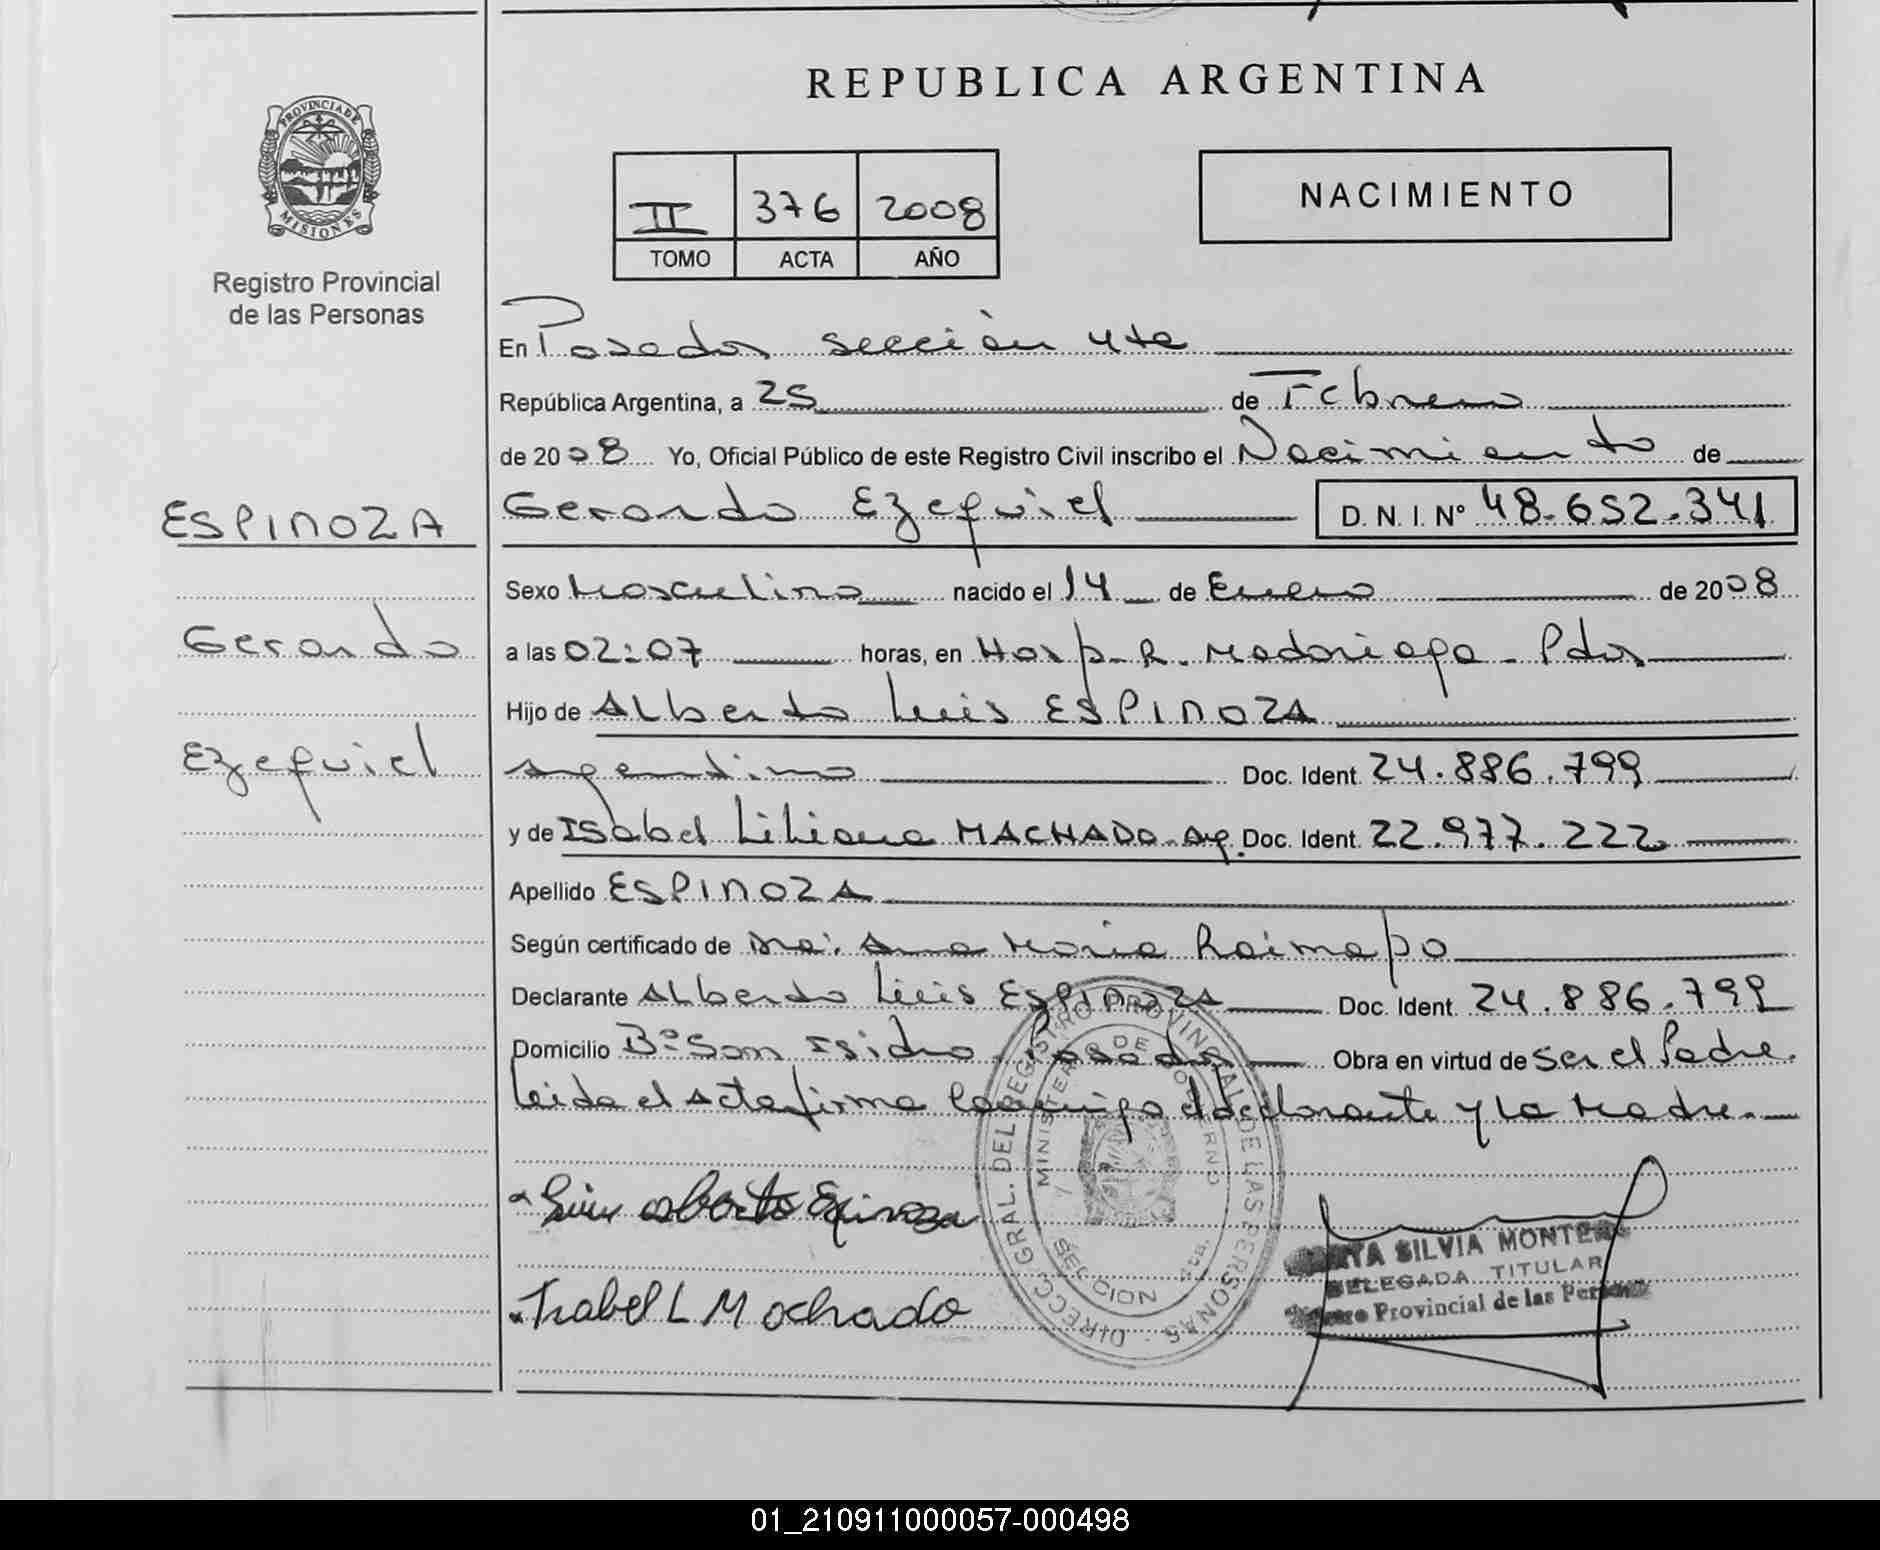 REPUBLICA ARGENTINA
PROVINCIA DE MISIONES
Registro Provincial
de las Personas
II 376 2008
TOMO ACTA AÑO
NACIMIENTO
En Posadas sección 4ta
República Argentina, a 25 de Febrero
de 2008 Yo, Oficial Público de este Registro Civil inscribo el Nacimiento de
ESPINOZA
Gerardo
Ezequiel
Gerardo Ezequiel D. N. I. Nº 48.652.341
Sexo Masculino nacido el 14 de Enero de 2008
a las 02:07 horas, en Hosp. R. Madariaga - Pdas
Hijo de Alberto Luis ESPINOZA
argentino Doc. Ident. 24.886.799
y de Isabel Liliana MACHADO - arg. Doc. Ident. 22.977.222
Apellido ESPINOZA
Según certificado de Dra. Ana Maria Raimapo
Declarante Alberto Luis ESPINOZA Doc. Ident. 24.886.799
Domicilio Bº San Isidro Posadas Obra en virtud de ser el Padre.
Leida el Acta firma conmigo el declarante y la Madre.
Luis alberto Espinoza
Isabel L Machado
DIRECC. GRAL. DEL REGISTRO PROVINCIAL DE LAS PERSONAS
MINISTERIO DE GOBIERNO
SECCION 4ta.
SILVIA MONTERO
DELEGADA TITULAR
Provincial de las Personas
01_210911000057-000498